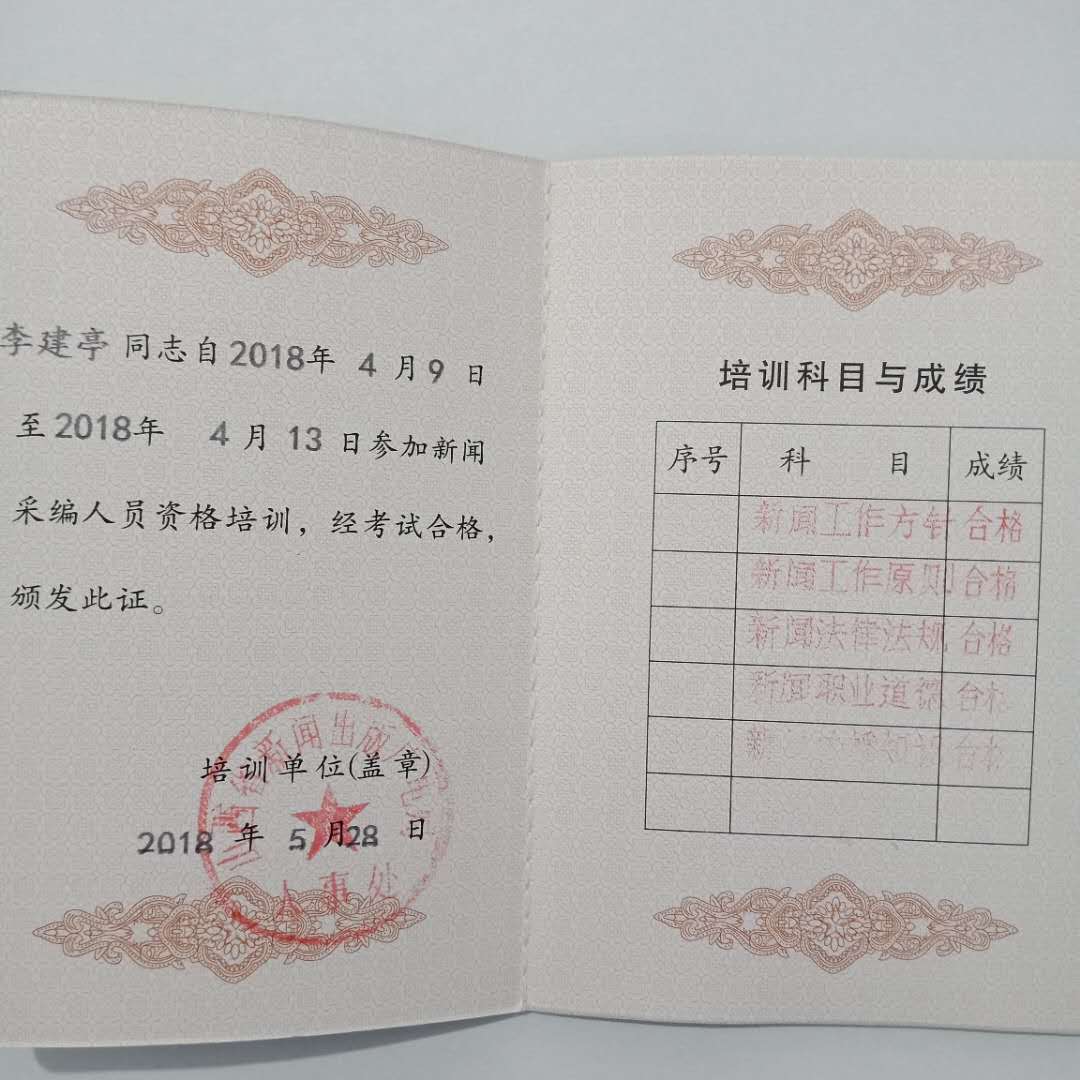 李建亭 同志自2018年 4 月 9 日
至2018年 4 月 13 日参加新闻
采编人员资格培训，经考试合格，
颁发此证。
山西省新闻出版广电局
培训单位(盖章)
2018 年 5 月28 日
人事处
培训科目与成绩
序号 科 目 成绩
新闻工作方针 合格
新闻工作原则 合格
新闻法律法规 合格
新闻职业道德 合格
新 合格